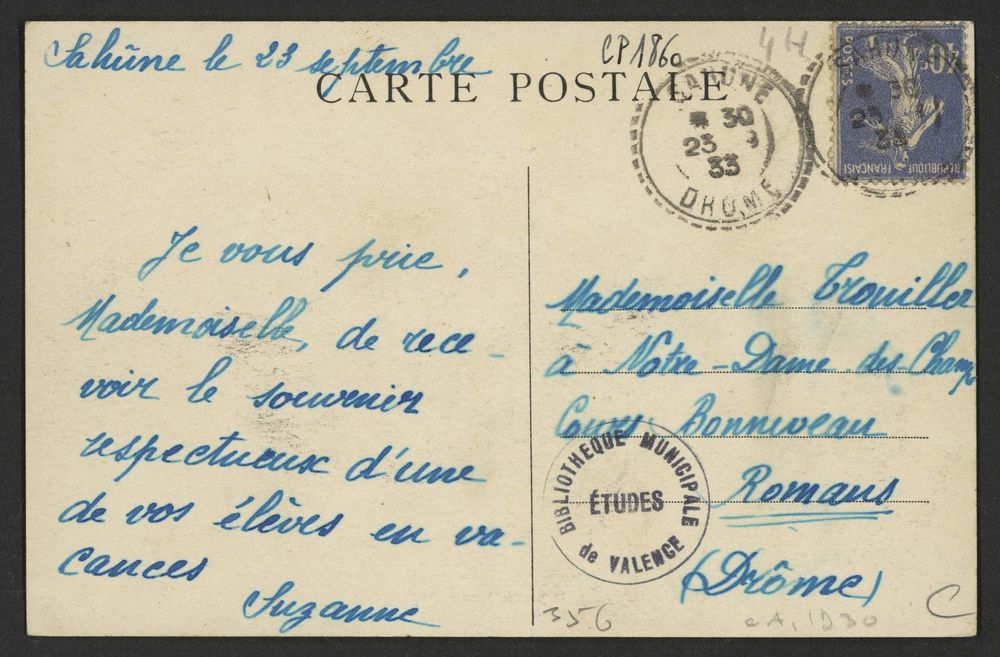 Sahûne le 23 septembre
CP1860
4H
CARTE POSTALE
SAHUNE
* 30
23 9
33
DROME
POSTES
40c
REPUBLIQUE FRANÇAISE
Je vous prie,
Mademoiselle, de rece-
voir le souvenir
respectueux d'une
de vos élèves en va-
cances
Suzanne
Mademoiselle Trouiller
à Notre-Dame-des-Champs
Cours Bonneveau
Romans
(Drôme)
BIBLIOTHEQUE MUNICIPALE
ÉTUDES
de VALENCE
356
cA, 1930
C